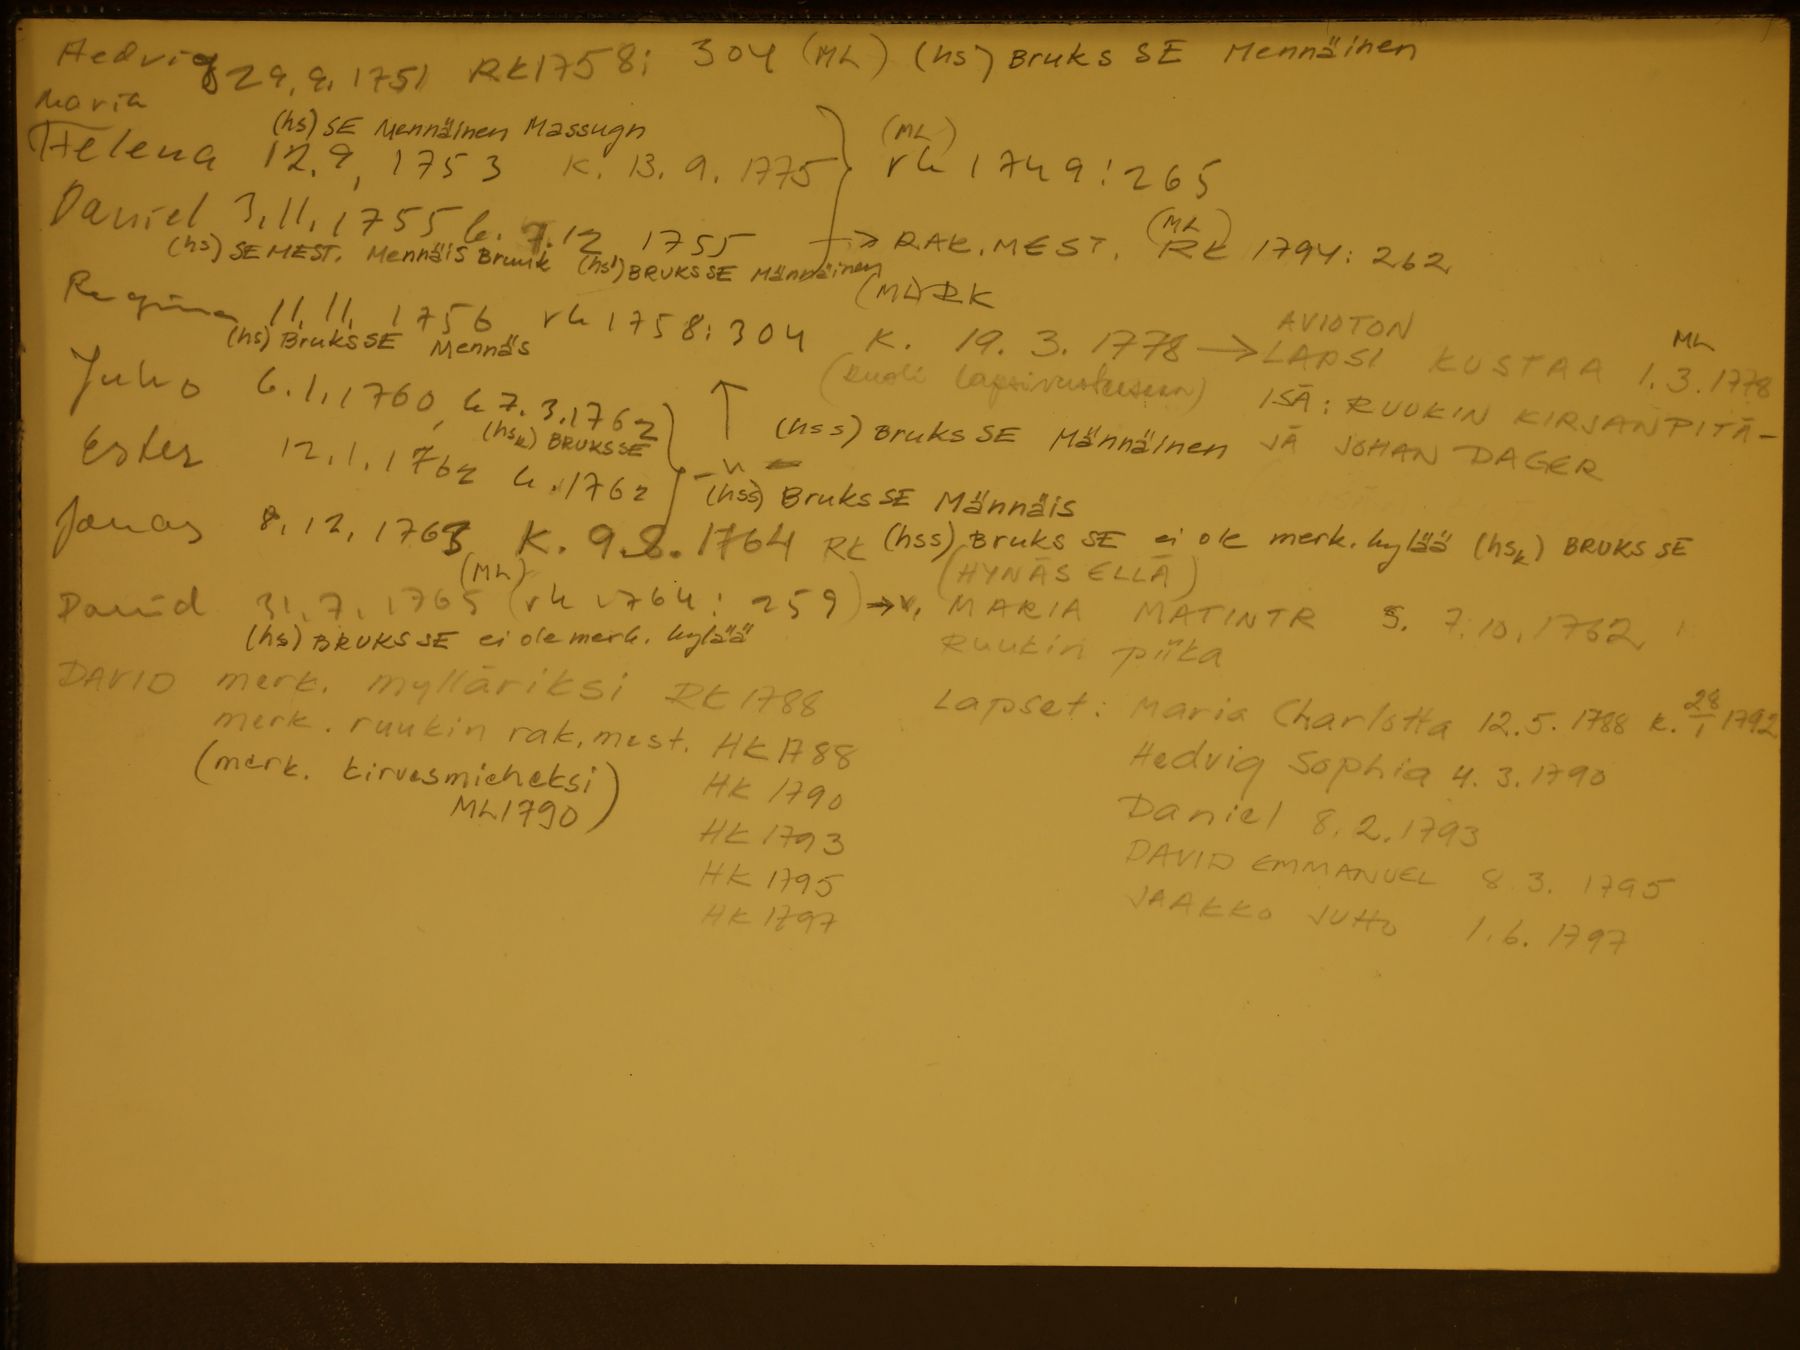 Hedvig 29.9.1751 RK1758: 304 (ML) (hs) Bruks SE Mennäinen
Maria
(hs) SE Mennäinen Massugn
Helena 12.9, 1753 K. 13. 9. 1775 (ML) rk 1749:265
Daniel 3.11.1755 k. 7.12 1755 → RAK. MEST. (ML) RK 1794:262
(hs) SE MEST. Mennäis Bruuk (hs) BRUKS SE Männäinen
(ML) RK
Regina 11.11. 1756 rk 1758:304 K. 19. 3. 1778 → AVIOTON LAPSI KUSTAA ML 1.3.1778
(hs) Bruks SE Mennäs (kuoli lapsivuoteeseen) ISÄ: RUUKIN KIRJANPITÄ-
JÄ JOHAN DAGER
Juho 6.1.1760, k 7.3.1762
(hsk) BRUKS SE (hss) Bruks SE Männäinen
Ester 12.1.1762 k. 1762
(hss) Bruks SE Männäis
Jonas 8.12.1763 K. 9.8.1764 RK (hss) Bruks SE ei ole merk. kylää (hsk) BRUKS SE
(HYNÄSELLÄ)
David 31.7.1765 (ML) (rk 1764: 259) → v. MARIA MATINTR S. 7.10.1762
(hs) BRUKS SE ei ole merk. kylää Ruukin piika
DAVID merk. mylläriksi RK 1788
merk. ruukin rak. mest. HK 1788
(merk. kirvesmieheksi) HK 1790
ML 1790
HK 1793
HK 1795
HK 1797
Lapset: Maria Charlotta 12.5.1788 k. 28/1 1792
Hedvig Sophia 4.3.1790
Daniel 8.2.1793
DAVID EMMANUEL 8.3.1795
JAAKKO JUHO 1.6.1797